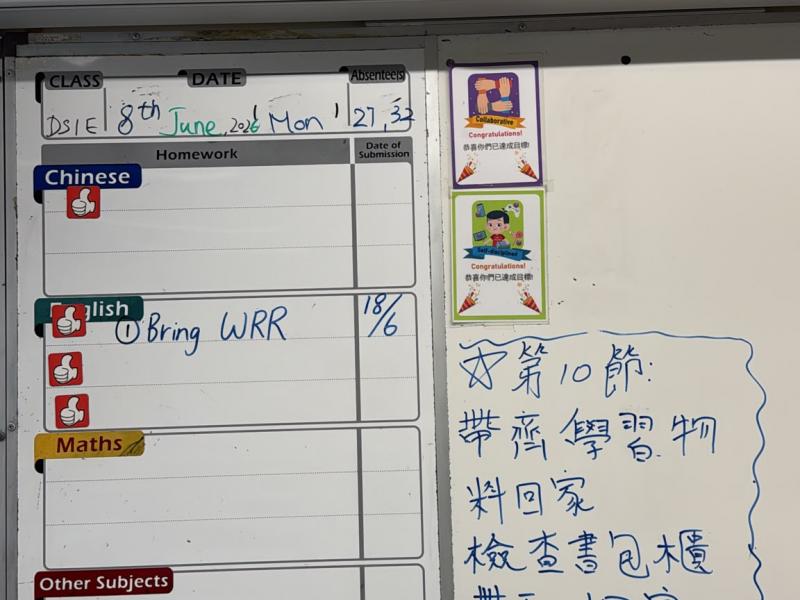 CLASS DATE Absentee(s)
DS1E 8th June, 2026 ( Mon ) 27, 32
Homework Date of Submission
Chinese
English
① Bring WRR 18/6
Maths
Other Subjects
Collaborative
Congratulations!
恭喜你們已達成目標!
Self-discipline
Congratulations!
恭喜你們已達成目標!
☆第10節:
帶齊學習物
料回家
檢查書包櫃